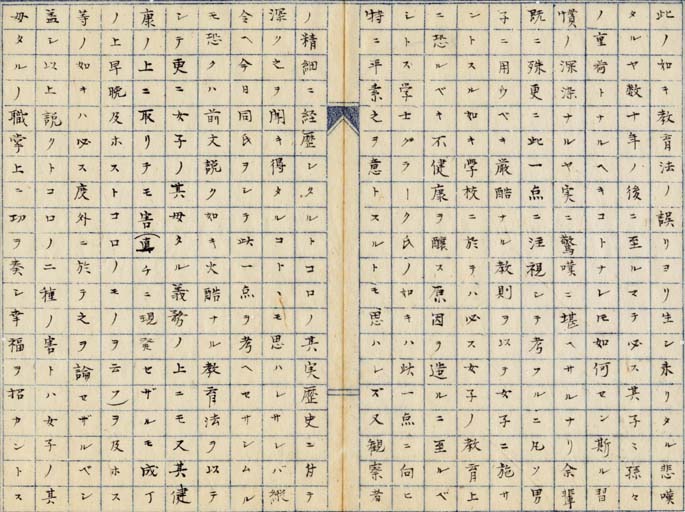 此ノ如キ教育法ノ誤リヨリ生シ来リタル悲嘆
タルヤ数十年ノ後ニ至ルマテ必ス其子ミ孫々
ノ重荷トナルヘキコトナレ𪜈如何セン斯ル習
慣ノ深染ナルヤ実ニ驚嘆ニ堪ヘサルナリ余輩
既ニ殊更ニ此一点ニ注視シテ考フルニ凡ソ男
子ニ用ウベキ厳酷ナル教則ヲ以テ女子ニ施サ
ントスル如キ学校ニ於テハ必ス女子ノ教育上
ニ恐ルベキ不健康ヲ醸ス原因ヲ造ルニ至ルベ
シトス学士グラーク氏ノ如キハ此一点ニ向ヒ
特ニ平素之ヲ意トスルトモ思ハレズ又観察者
ノ精細ニ経歴シタルトコロノ其実歴史ニ付テ
深ク之ヲ聞キ得タルコトヽモ思ハレサレバ縦
令ヘ今日同氏ヲシテ此一点ヲ考ヘセサシムル
モ恐クハ前文説ク如キ火酷ナル教育法ヲ以テ
シテ更ニ女子ノ其母タル義務ノ上ニモス其健
康ノ上ニ取リテモ害(直チニ現発セザルモ成丁
ノ上早晩及ホストコロノモノヲ云フ)ヲ及ホス
等ノ如キハ必ス度外ニ於テ之ヲ論セザルベシ
盖シ以上説クトコロノ二種ノ害トハ女子ノ其
母タルノ職掌上ニ功ヲ奏シ幸福ヲ招カントス